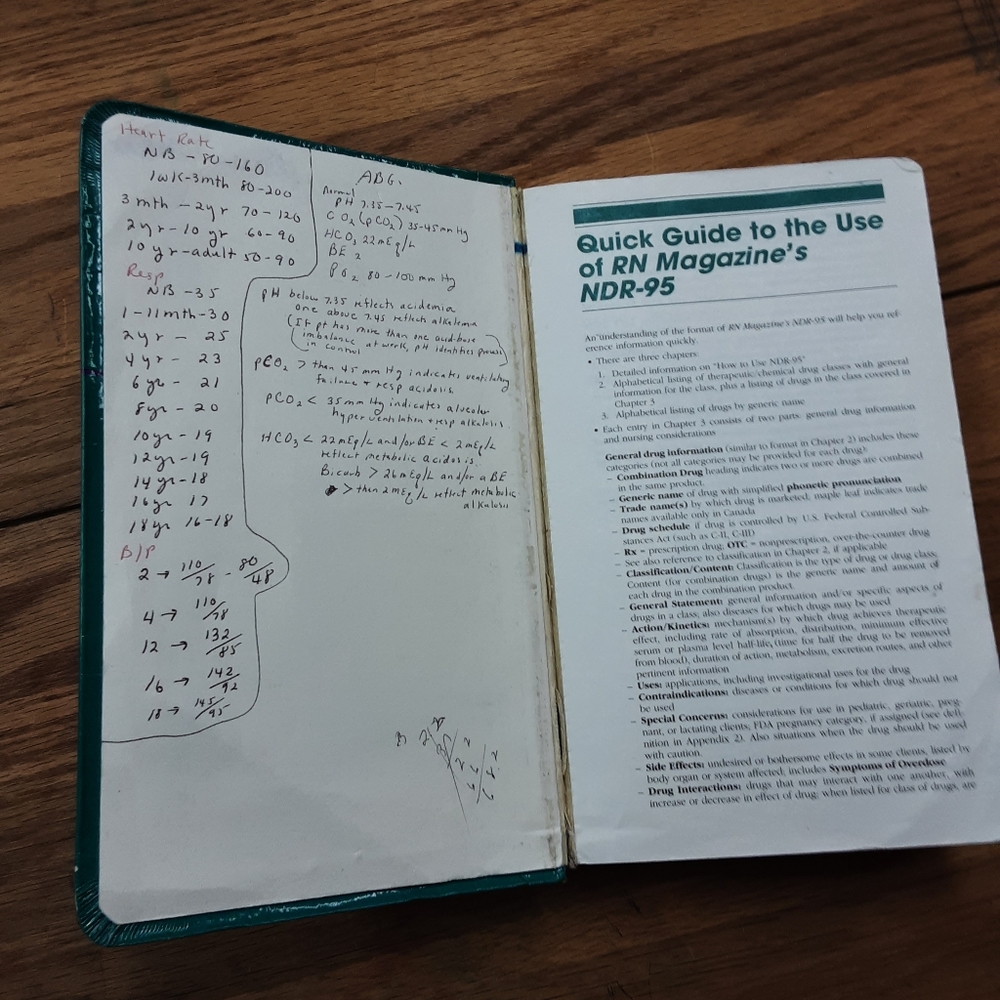 Heart Rate
NB - 80-160
1wk-3mth 80-200
3 mth - 2yr 70-120
2yr-10 yr 60-90
10 yr-adult 50-90
Resp
NB -35
1-11mth-30
2yr - 25
4yr - 23
6yr - 21
8yr - 20
10yr-19
12yr-19
14yr-18
16yr 17
18yr 16-18
B/P
2 → 110/78 - 80/48
4 → 110/78
12 → 132/85
16 → 142/92
18 → 145/95
ABG.
Normal
pH 7.35-7.45
CO2 (pCO2) 35-45 mm Hg
HCO3 22mEq/L
BE 2
PO2 80-100 mm Hg
pH below 7.35 reflects acidemia
one above 7.45 reflects alkalemia
(If pt has more than one acid-base
imbalance at work, pH identifies process
in control)
pCO2 > than 45 mm Hg indicates ventilatory
failure + resp acidosis
pCO2 < 35mm Hg indicates alveolar
hyperventilation + resp alkalosis
HCO3 < 22mEq/L and/or BE < 2mEq/L
reflect metabolic acidosis
Bicarb > 26mEq/L and/or a BE
> then 2mEq/L reflect metabolic
alkalosis
Quick Guide to the Use
of RN Magazine's
NDR-95
An understanding of the format of RN Magazine's NDR-95 will help you ref-
erence information quickly.
• There are three chapters:
1. Detailed information on "How to Use NDR-95"
2. Alphabetical listing of therapeutic/chemical drug classes with general
information for the class, plus a listing of drugs in the class covered in
Chapter 3
3. Alphabetical listing of drugs by generic name
• Each entry in Chapter 3 consists of two parts: general drug information
and nursing considerations
General drug information (similar to format in Chapter 2) includes these
categories (not all categories may be provided for each drug):
– Combination Drug heading indicates two or more drugs are combined
in the same product.
– Generic name of drug with simplified phonetic pronunciation
– Trade name(s) by which drug is marketed; maple leaf indicates trade
names available only in Canada
– Drug schedule if drug is controlled by U.S. Federal Controlled Sub-
stances Act (such as C-II, C-III)
– Rx = prescription drug, OTC = nonprescription, over-the-counter drug
– See also reference to classification in Chapter 2, if applicable
– Classification/Content: Classification is the type of drug or drug class;
Content (for combination drugs) is the generic name and amount of
each drug in the combination product.
– General Statement: general information and/or specific aspects of
drugs in a class; also diseases for which drugs may be used
– Action/Kinetics: mechanism(s) by which drug achieves therapeutic
effect, including rate of absorption, distribution, minimum effective
serum or plasma level half-life, (time for half the drug to be removed
from blood), duration of action, metabolism, excretion routes, and other
pertinent information
– Uses: applications, including investigational uses for the drug
– Contraindications: diseases or conditions for which drug should not
be used
– Special Concerns: considerations for use in pediatric, geriatric, preg-
nant, or lactating clients; FDA pregnancy category, if assigned (see defi-
nition in Appendix 2). Also situations when the drug should be used
with caution.
– Side Effects: undesired or bothersome effects in some clients, listed by
body organ or system affected; includes Symptoms of Overdose
– Drug Interactions: drugs that may interact with one another, with
increase or decrease in effect of drug; when listed for class of drugs, are